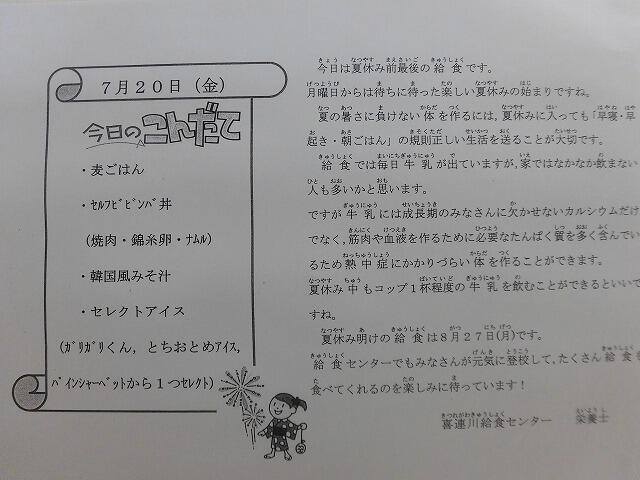 7月20日（金）
今日のこんだて
・麦ごはん
・ｾﾙﾌﾋﾞﾋﾞﾝﾊﾞ丼
（焼肉・錦糸卵・ﾅﾑﾙ）
・韓国風みそ汁
・セレクトアイス
（ｶﾞﾘｶﾞﾘくん，とちおとめｱｲｽ，
ﾊﾟｲﾝｼｬｰﾍﾞｯﾄから１つｾﾚｸﾄ）
今日は夏休み前最後の給食です。
月曜日からは待ちに待った楽しい夏休みの始まりですね。
夏の暑さに負けない体を作るには，夏休みに入っても「早寝・早
起き・朝ごはん」の規則正しい生活を送ることが大切です。
給食では毎日牛乳が出ていますが，家ではなかなか飲まない
人も多いかと思います。
ですが牛乳には成長期のみなさんに欠かせないカルシウムだけ
でなく，筋肉や血液を作るために必要なたんぱく質を多く含んでい
るため熱中症にかかりづらい体を作ることができます。
夏休み中もコップ１杯程度の牛乳を飲むことができるといいで
すね。
夏休み明けの給食は８月２７日(月)です。
給食センターでもみなさんが元気に登校して，たくさん給食を
食べてくれるのを楽しみに待っています！
喜連川給食センター　栄養士